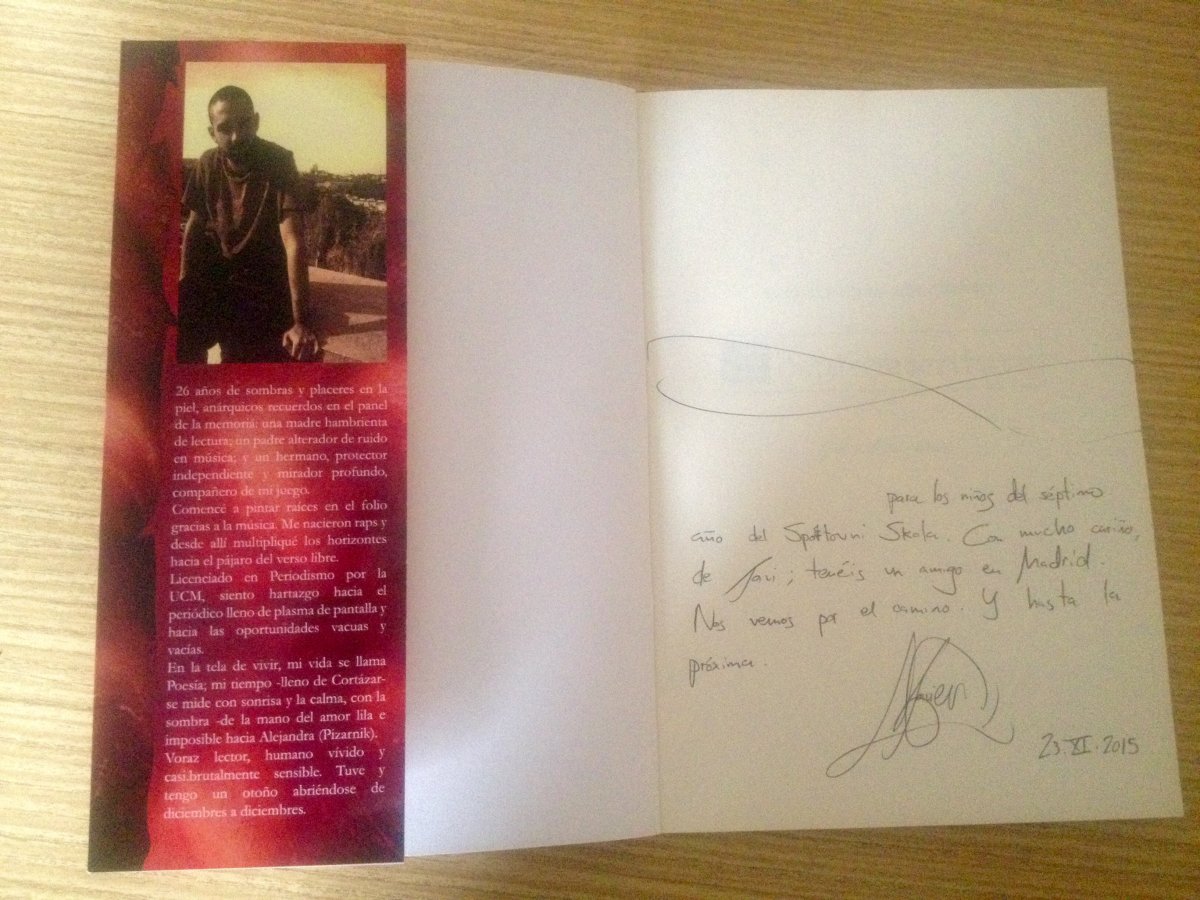 26 años de sombras y placeres en la
piel, anárquicos recuerdos en el panel
de la memoria: una madre hambrienta
de lectura; un padre alterador de ruido
en música; y un hermano, protector
independiente y mirador profundo,
compañero de mi juego.
Comencé a pintar raíces en el folio
gracias a la música. Me nacieron raps y
desde allí multipliqué los horizontes
hacia el pájaro del verso libre.
Licenciado en Periodismo por la
UCM, siento hartazgo hacia el
periódico lleno de plasma de pantalla y
hacia las oportunidades vacuas y
vacías.
En la tela de vivir, mi vida se llama
Poesía; mi tiempo -lleno de Cortázar-
se mide con sonrisa y la calma, con la
sombra -de la mano del amor lila e
imposible hacia Alejandra (Pizarnik).
Voraz lector, humano vívido y
casi.brutalmente sensible. Tuve y
tengo un otoño abriéndose de
diciembres a diciembres.
para los niños del séptimo
año del Sportovni Skola. Con mucho cariño,
de Javi; tenéis un amigo en Madrid.
Nos vemos por el camino. Y hasta la
próxima.
23·XI·2015